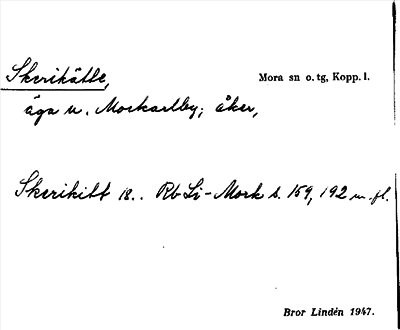 Skerikätte,
Mora sn o. tg, Kopp. l.
äga u. Morkarlby; åker,
Skerikitt 18.. Rb Li-Mork s. 159, 192 m. fl.
Bror Lindén 1947.